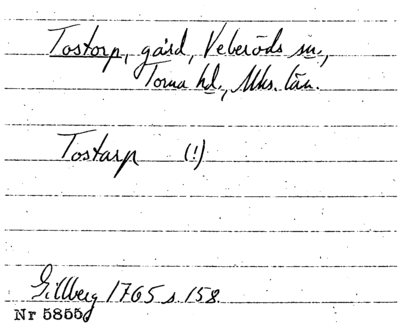 Tostorp, gård, Veberöds sn.,
Torna hd., Mhs. län.
Tostarp (!)
Gillberg 1765 s. 158
Nr 5855